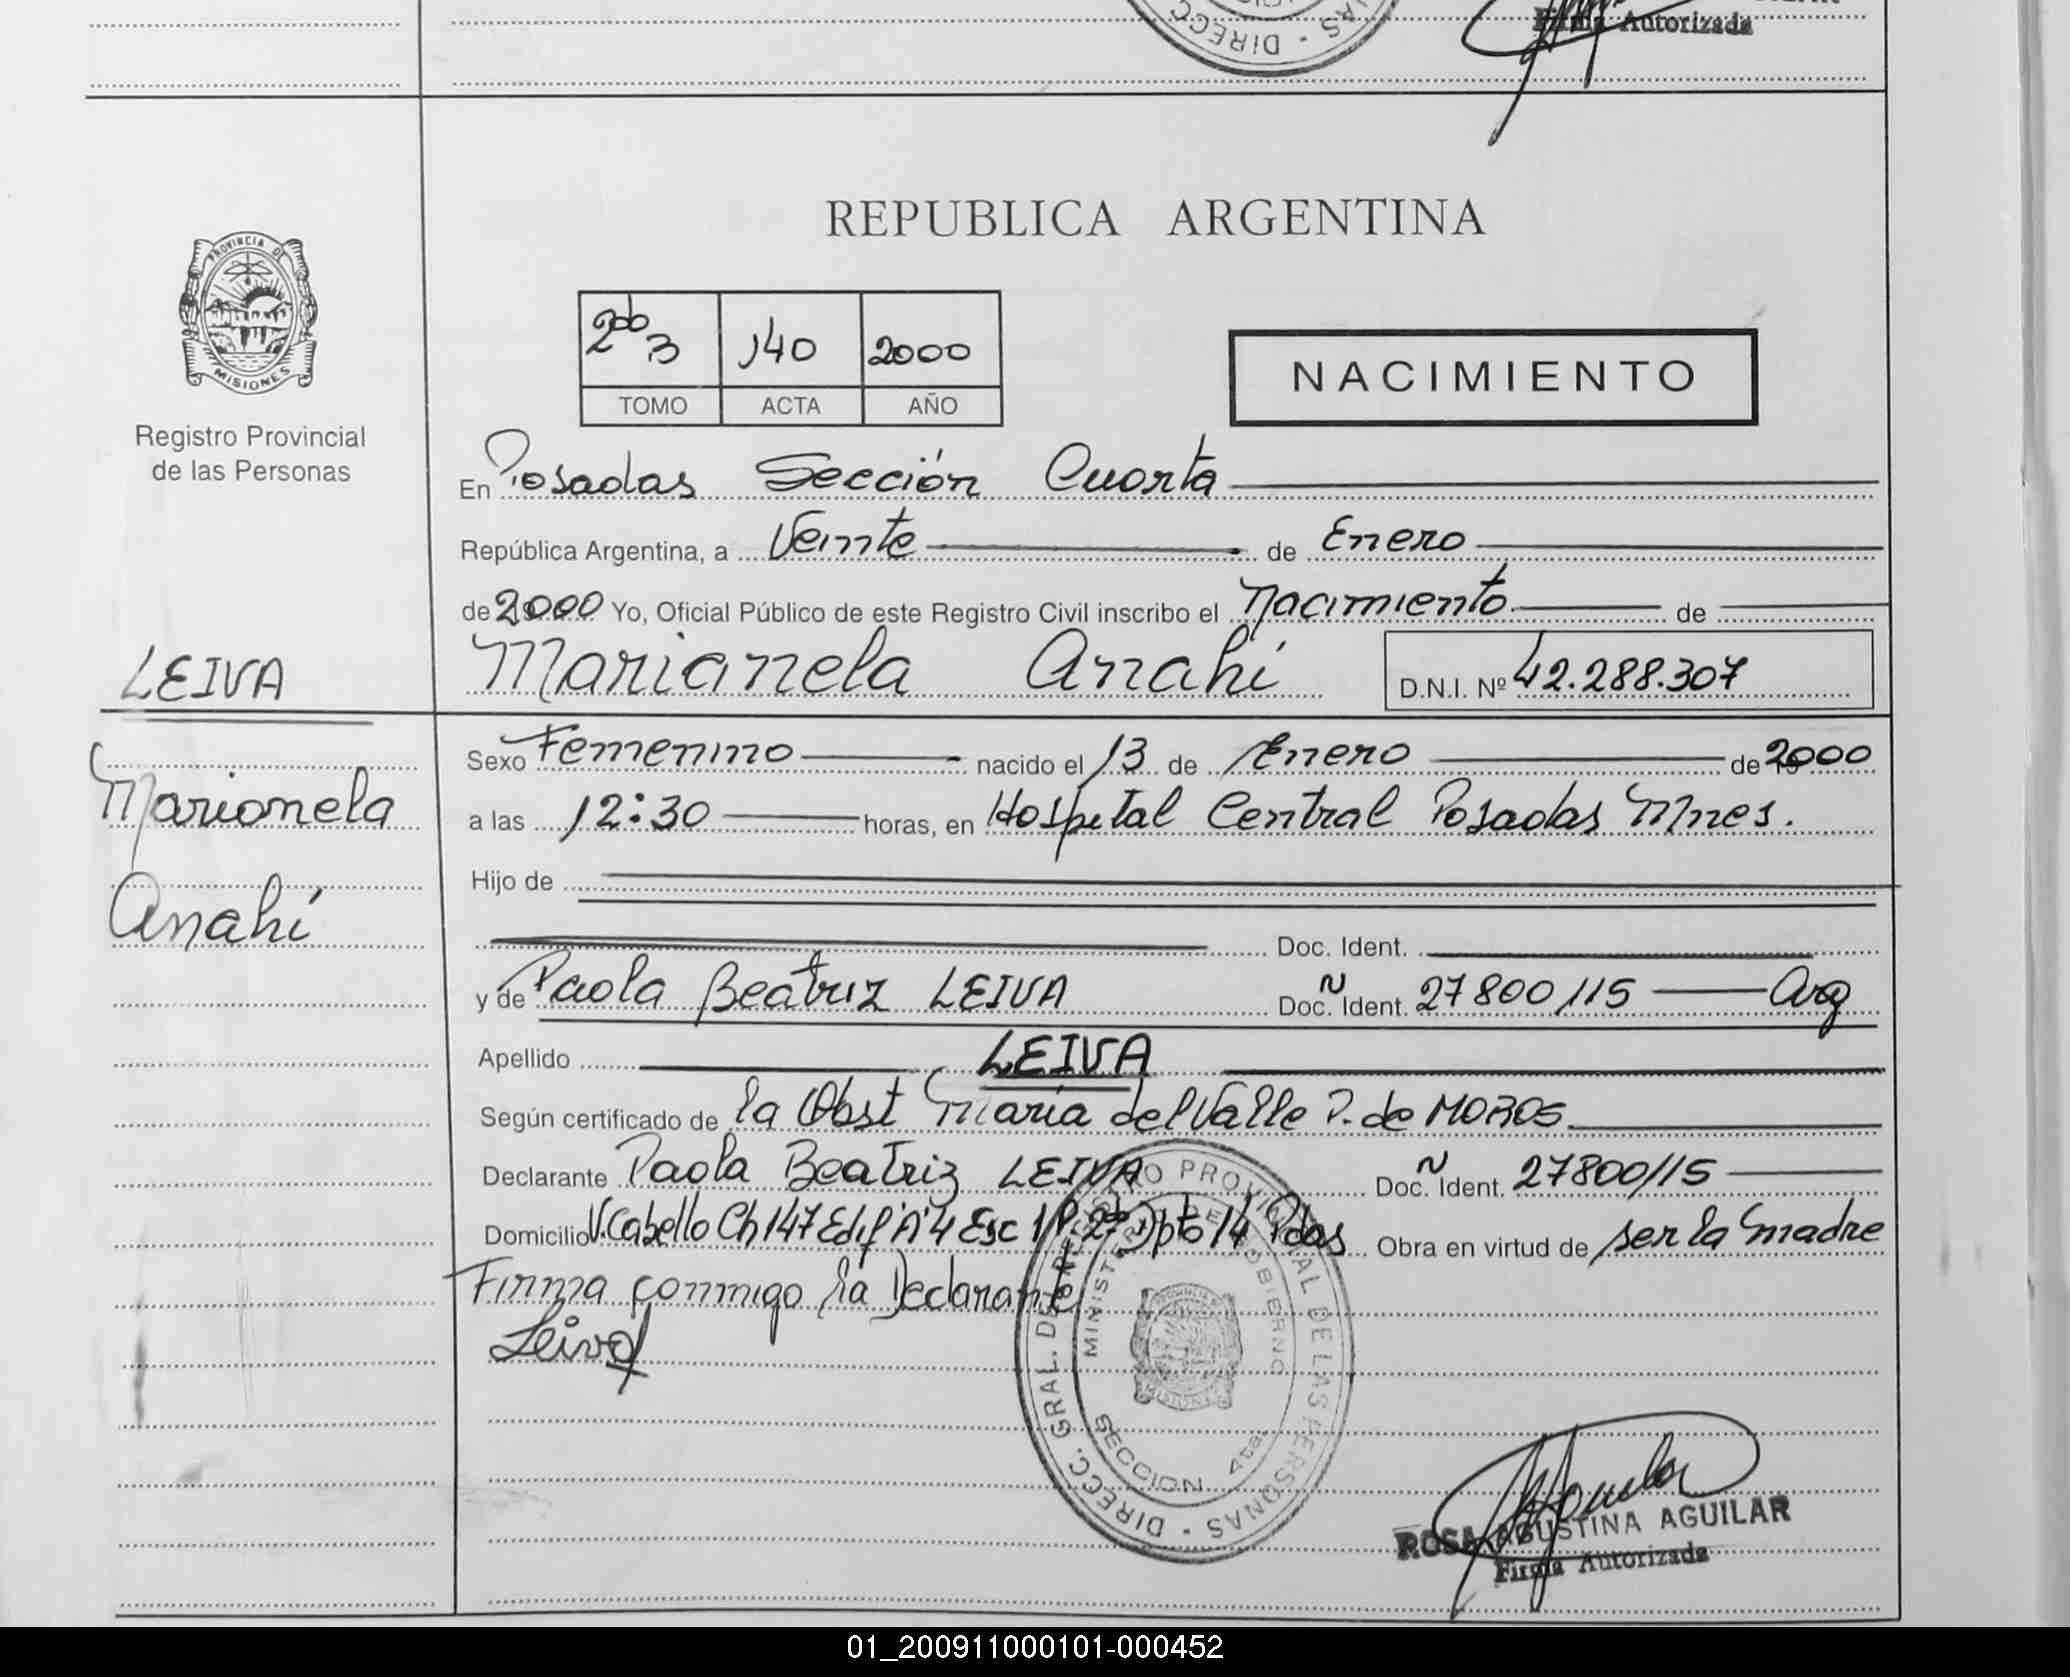 Firma Autorizada
REPUBLICA ARGENTINA
PROVINCIA DE
MISIONES
Registro Provincial
de las Personas
2do 3 140 2000
TOMO ACTA AÑO
NACIMIENTO
En Posadas Sección Cuarta
República Argentina, a Veinte de Enero
de 2000 Yo, Oficial Público de este Registro Civil inscribo el Nacimiento de
LEIVA
Marianela Anahí D.N.I. Nº 42.288.307
Marianela
Anahí
Sexo Femenino nacido el 13 de Enero de 2000
a las 12:30 horas, en Hospital Central Posadas Mnes.
Hijo de
Doc. Ident.
y de Paola Beatriz LEIVA Doc. N Ident. 27800115 Arg
Apellido LEIVA
Según certificado de la Obst María del Valle P. de MOROS
Declarante Paola Beatriz LEIVA Doc. N Ident. 27800115
Domicilio V. Cabello Ch 147 Edif "A" 4 Esc 1 P. 2do Dpto 14 Pdas Obra en virtud de ser la madre
Firma conmigo la Declarante
Leiva
DIRECC. GRAL. DE REGISTRO PROVINCIAL DE LAS PERSONAS
MINISTERIO DE GOBIERNO
SECCION 4ta.
MISIONES
ROSA AGUSTINA AGUILAR
Firma Autorizada
01_200911000101-000452